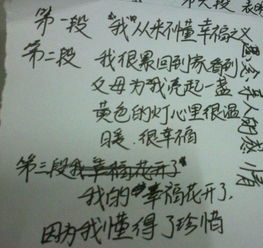 第一段 "我"从来不懂幸福之义
第二段 我很累回到家看到
父母为我亮起一盏
黄色的灯心里很温
暖.很幸福
第三段我幸福花开了
我的"幸福花开了
因为我懂得了珍惜